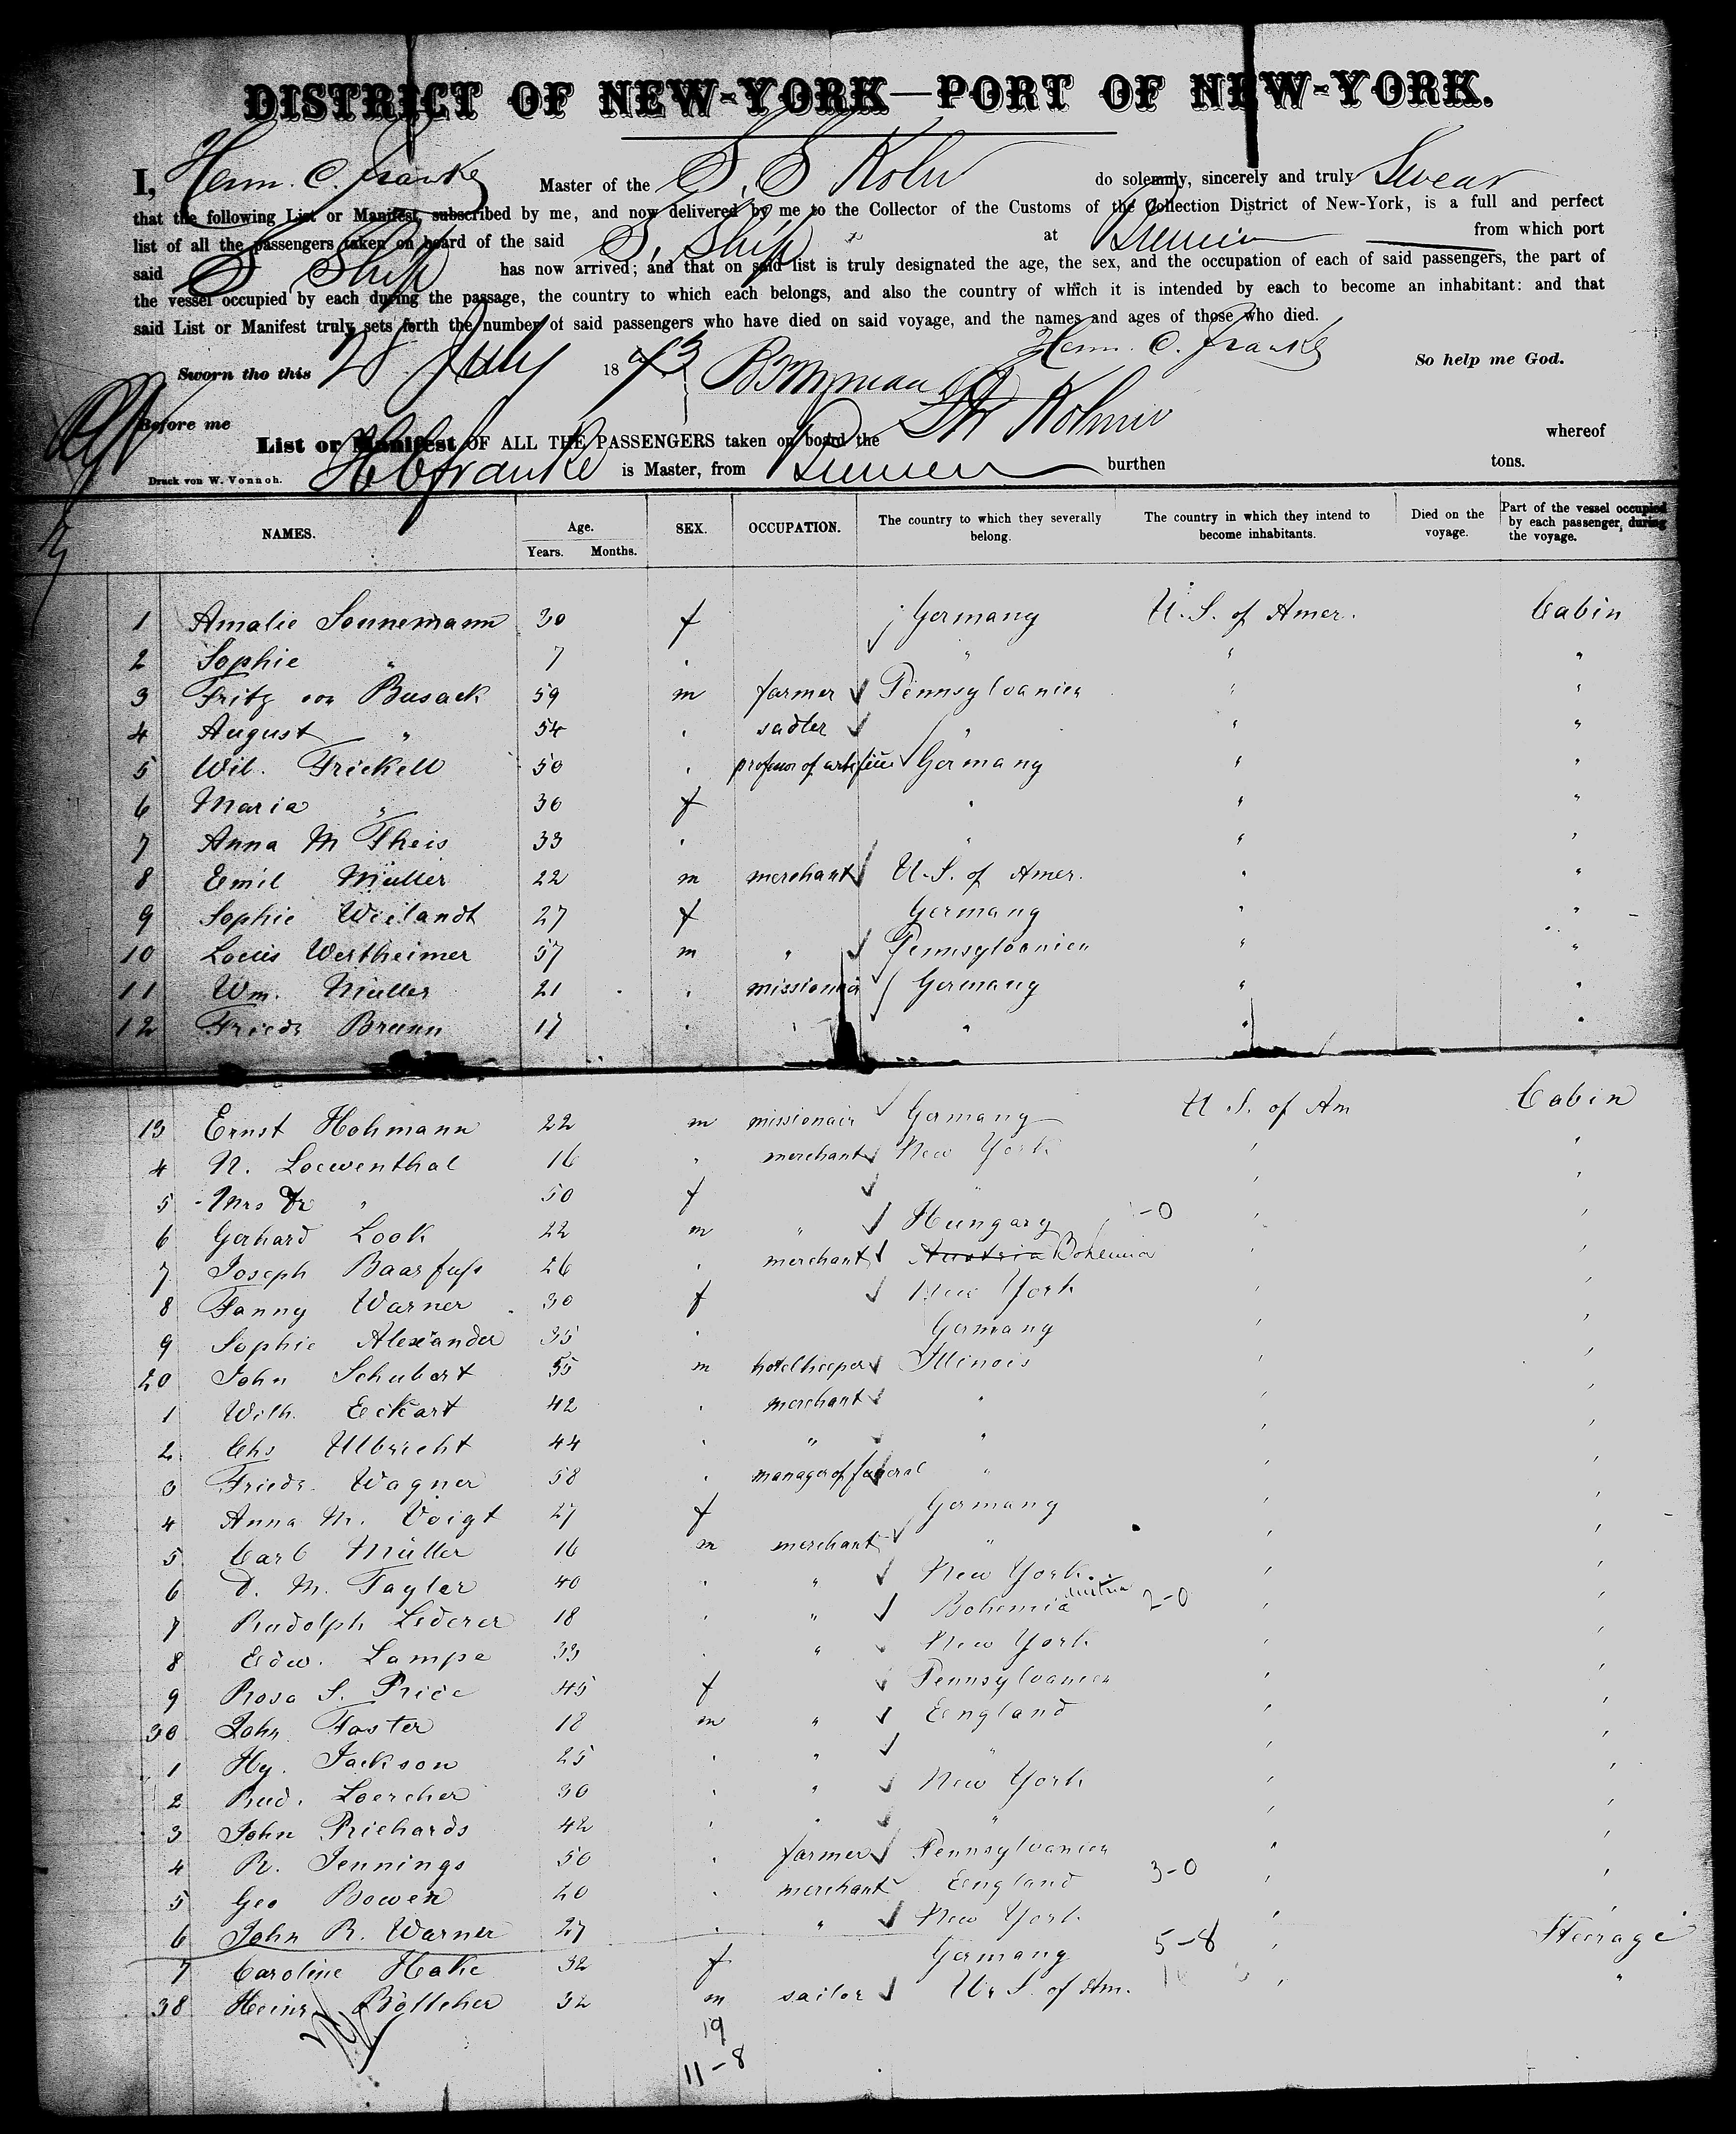 DISTRICT OF NEW-YORK—PORT OF NEW-YORK.
I, Herm. C. Franke Master of the S. S. Koln do solemnly, sincerely and truly Swear
that the following List or Manifest, subscribed by me, and now delivered by me to the Collector of the Customs of the Collection District of New-York, is a full and perfect
list of all the passengers taken on board of the said S. Ship at Bremen from which port
said S Ship has now arrived; and that on said list is truly designated the age, the sex, and the occupation of each of said passengers, the part of
the vessel occupied by each during the passage, the country to which each belongs, and also the country of which it is intended by each to become an inhabitant: and that
said List or Manifest truly sets forth the number of said passengers who have died on said voyage, and the names and ages of those who died.
Herm. C. Franke
Sworn tho this 28 July 1873 So help me God.
Before me
List or Manifest OF ALL THE PASSENGERS taken on board the whereof
HCFranke is Master, from Bremen burthen tons.
Druck von W. Vonnoh.
NAMES. Age. Years. Months. SEX. OCCUPATION. The country to which they severally belong. The country in which they intend to become inhabitants. Died on the voyage. Part of the vessel occupied by each passenger, during the voyage.
1 Amalie Sonnemann 30 f Germany U. S. of Amer. Cabin
2 Sophie " 7 " " " "
3 Fritz von Busack 59 m farmer Pennsylvanien " "
4 August " 54 " sadler " " "
5 Wil. Frickell 50 " Germany " "
6 Maria " 36 f " " "
7 Anna M Theis 33 " " " "
8 Emil Müller 22 m merchant U. S. of Amer. " "
9 Sophie Wielandt 27 f Germany " "
10 Louis Wertheimer 57 m " Pennsylvanien " "
11 Wm. Müller 21 " missionair Germany " "
12 Friedr Brunn 17 " " " " "
13 Ernst Hohmann 22 m missionair Germany U. S. of Am Cabin
4 N. Loewenthal 16 " merchant New York " "
5 Mrs Dr " 50 f " " "
6 Gerhard Look 22 m " Hungary -0 " "
7 Joseph Baarfuss 26 " merchant Austria Bohemia " "
8 Fanny Warner 30 f New York " "
9 Sophie Alexander 35 " Germany " "
20 John Schubart 55 m hotelkeeper Illinois " "
1 Wilh. Eckart 42 " merchant " " "
2 Chs Ulbricht 44 " " " " "
3 Friedr. Wagner 58 " manager of funeral " " "
4 Anna M. Voigt 27 f Germany " "
5 Carl Müller 16 m merchant " " "
6 D. M. Tayler 40 " " New York " "
7 Rudolph Lederer 18 " " Bohemia Austria 2-0 " "
8 Edw. Lampe 33 " " New York " "
9 Rosa S. Price 45 f Pennsylvanien " "
30 John Foster 18 m " England " "
1 Hy. Jackson 25 " " " " "
2 Rud. Loercher 30 " " New York " "
3 John Richards 42 " " " " "
4 R. Jennings 50 " farmer Pennsylvanien " "
5 Geo Bowen 20 " merchant England 3-0 " "
6 John R. Warner 27 " " New York " "
7 Caroline Hake 32 f Germany 5-8 " Steerage
38 Heinr. Böttcher 32 m sailor U. S. of Am. " "
19
11-8